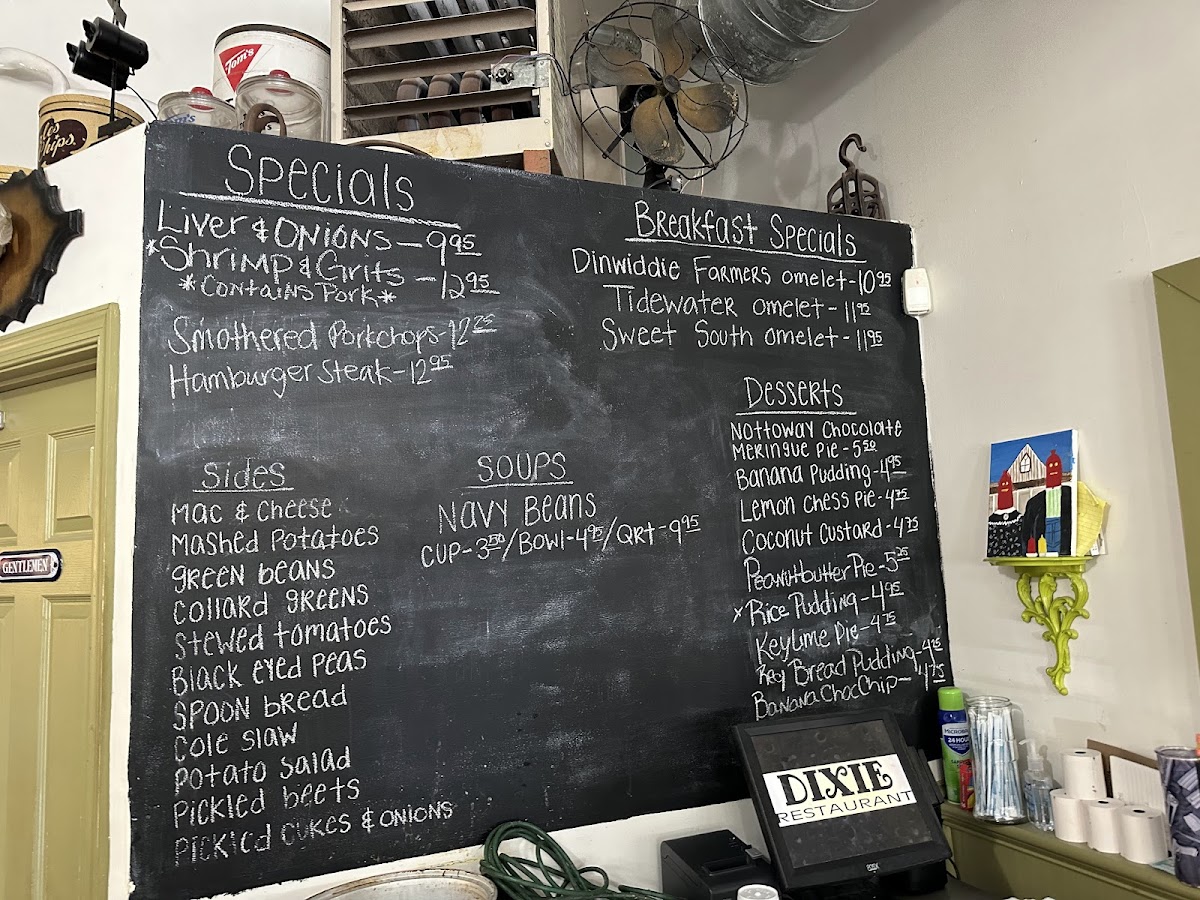 Tom's
Chips.
Specials
Liver & Onions - 9 95
*Shrimp & Grits - 12 95
*Contains Pork*
Smothered Porkchops - 12 25
Hamburger Steak - 12 95
Sides
Mac & Cheese
Mashed Potatoes
green beans
Collard greens
Stewed tomatoes
Black eyed Peas
Spoon bread
Cole slaw
Potato Salad
Pickled beets
Pickled cukes & onions
Soups
Navy Beans
Cup - 3 50 / Bowl - 4 95 / Qrt - 9 95
Breakfast Specials
Dinwiddie Farmers omelet - 10 95
Tidewater omelet - 11 95
Sweet South omelet - 11 95
Desserts
Nottoway Chocolate
Meringue Pie - 5 50
Banana Pudding - 4 95
Lemon Chess Pie - 4 75
Coconut Custard - 4 75
Peanutbutter Pie - 5 25
x Rice Pudding - 4 95
Key Lime Pie - 4 75
Bread Pudding - 4 25
Banana Choc Chip - 4 75
GENTLEMEN
DIXIE
RESTAURANT
MICROBAN
24 HOUR